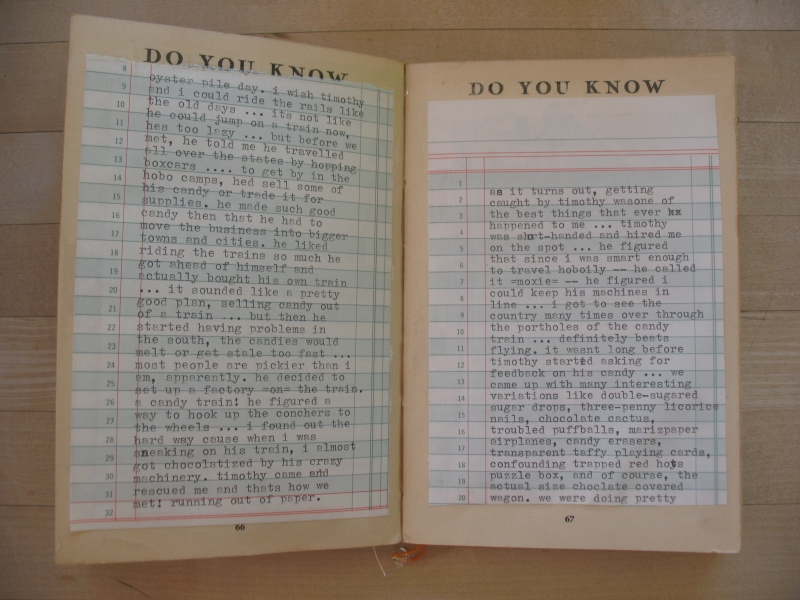 DO YOU KNOW
8
oyster pile day. i wish timothy
9
and i could ride the rails like
10
the old days ... its not like
he could jump on a train now,
11
hes too lazy ... but before we
12
met, he told me he travelled
all over the states by hopping
13
boxcars .... to get by in the
14
hobo camps, hed sell some of
his candy or trade it for
15
supplies. he made such good
16
candy then that he had to
move the business into bigger
17
towns and cities. he liked
18
riding the trains so much he
got ahead of himself and
19
actually bought his own train
20
... it sounded like a pretty
good plan, selling candy out
21
of a train ... but then he
22
started having problems in
the south, the candies would
23
melt or get stale too fast ...
24
most people are pickier than i
am, apparently. he decided to
25
set up a factory =on= the train.
26
a candy train! he figured a
way to hook up the conchers to
27
the wheels ... i found out the
28
hard way cause when i was
sneaking on his train, i almost
29
got chocolatized by his crazy
30
machinery. timothy came and
31
rescued me and thats how we
met! running out of paper.
32
66
DO YOU KNOW
1
as it turns out, getting
2
caught by timothy wasone of
3
the best things that ever hx
happened to me ... timothy
4
was short-handed and hired me
5
on the spot ... he figured
that since i was smart enough
6
to travel hoboily -- he called
7
it =moxie= -- he figured i
8
could keep his machines in
line ... i got to see the
9
country many times over through
10
the portholes of the candy
train ... definitely beats
11
flying. it wasnt long before
12
timothy started asking for
feedback on his candy ... we
13
came up with many interesting
14
variations like double-sugared
sugar drops, three-penny licorice
15
nails, chocolate cactus,
16
troubled puffballs, marizpaper
airplanes, candy erasers,
17
transparent taffy playing cards,
18
confounding trapped red hots
puzzle box, and of course, the
19
actual size choclate covered
20
wagon. we were doing pretty
67